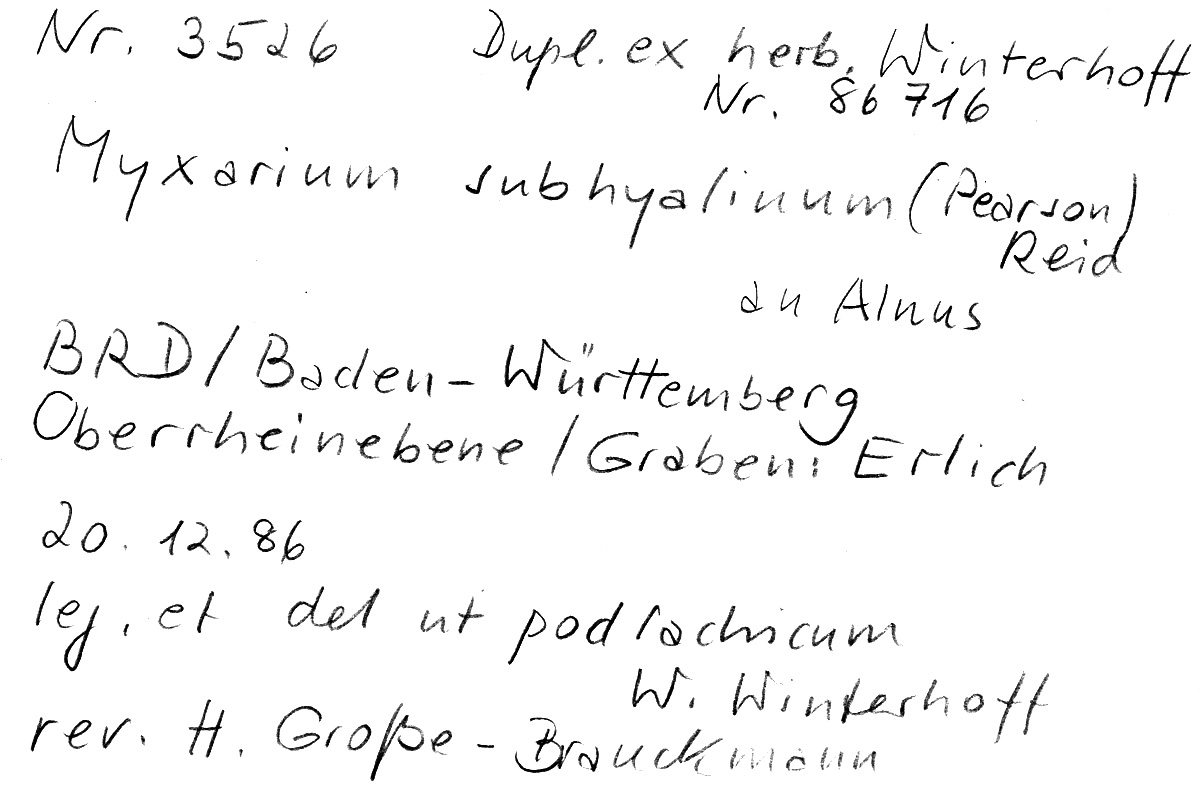 Nr. 3526 Dupl. ex herb. Winterhoff
Nr. 86 716
Myxarium subhyalinum (Pearson)
Reid
an Alnus
BRD/Baden-Württemberg
Oberrheinebene/Graben: Erlich
20.12.86
leg. et det ut podlachicum
W. Winterhoff
rev. H. Große-Brauckmann